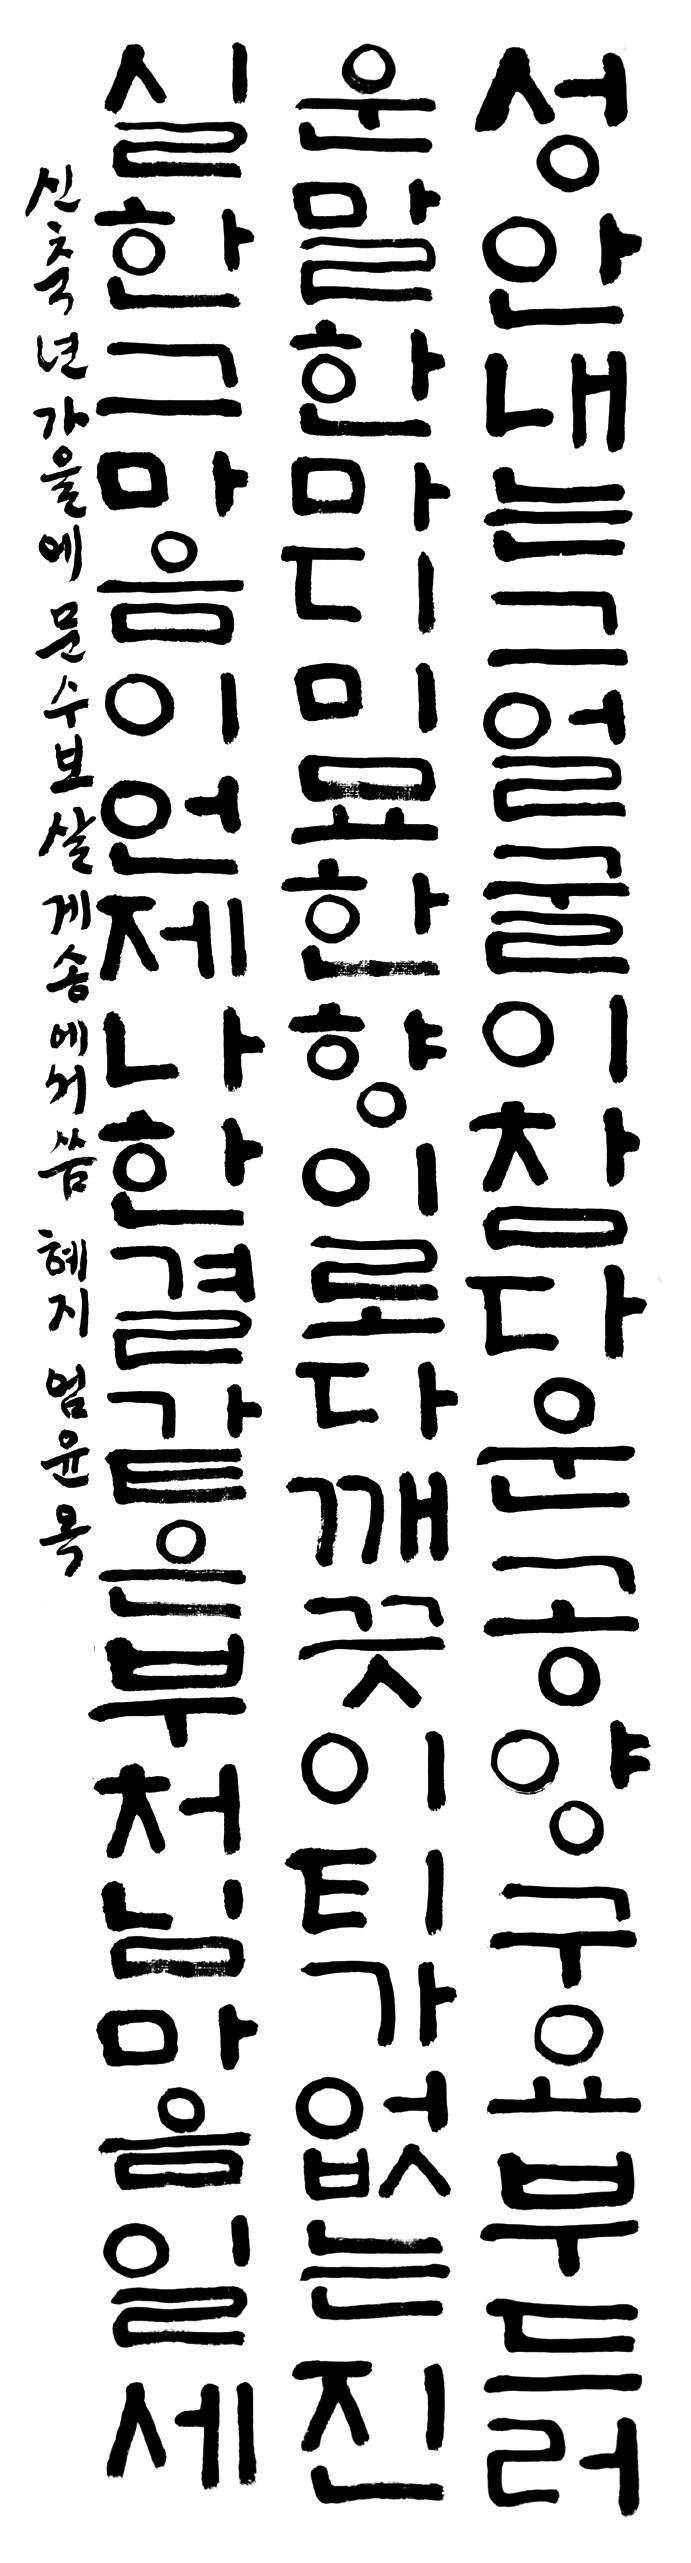 성안내는그얼굴이참다운공양구요부드러
운말한마디미묘한향이로다깨끗이티가없는진
실한그마음이언제나한결같은부처님마음일세
신축년가을에문수보살게송에서씀 혜지 엄윤옥